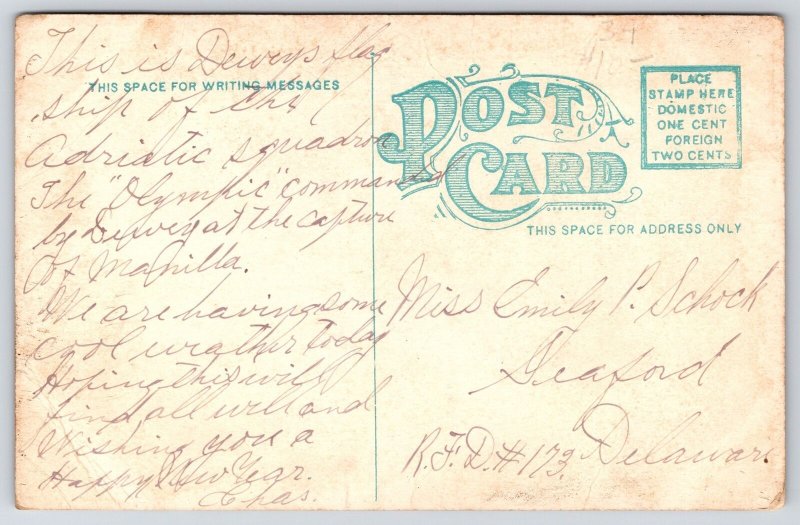 This is Deweys flag
THIS SPACE FOR WRITING MESSAGES
ship of the
Adriatic squadron
The "Olympic" command
by Dewey at the capture
of Manilla.
We are having some
cool weather today
Hoping this will
find all well and
Wishing you a
Happy New Year.
Chas.
POST
CARD
PLACE
STAMP HERE
DOMESTIC
ONE CENT
FOREIGN
TWO CENTS
THIS SPACE FOR ADDRESS ONLY
Miss Emily P. Schock
Seaford
R.F.D. # 173. Delaware